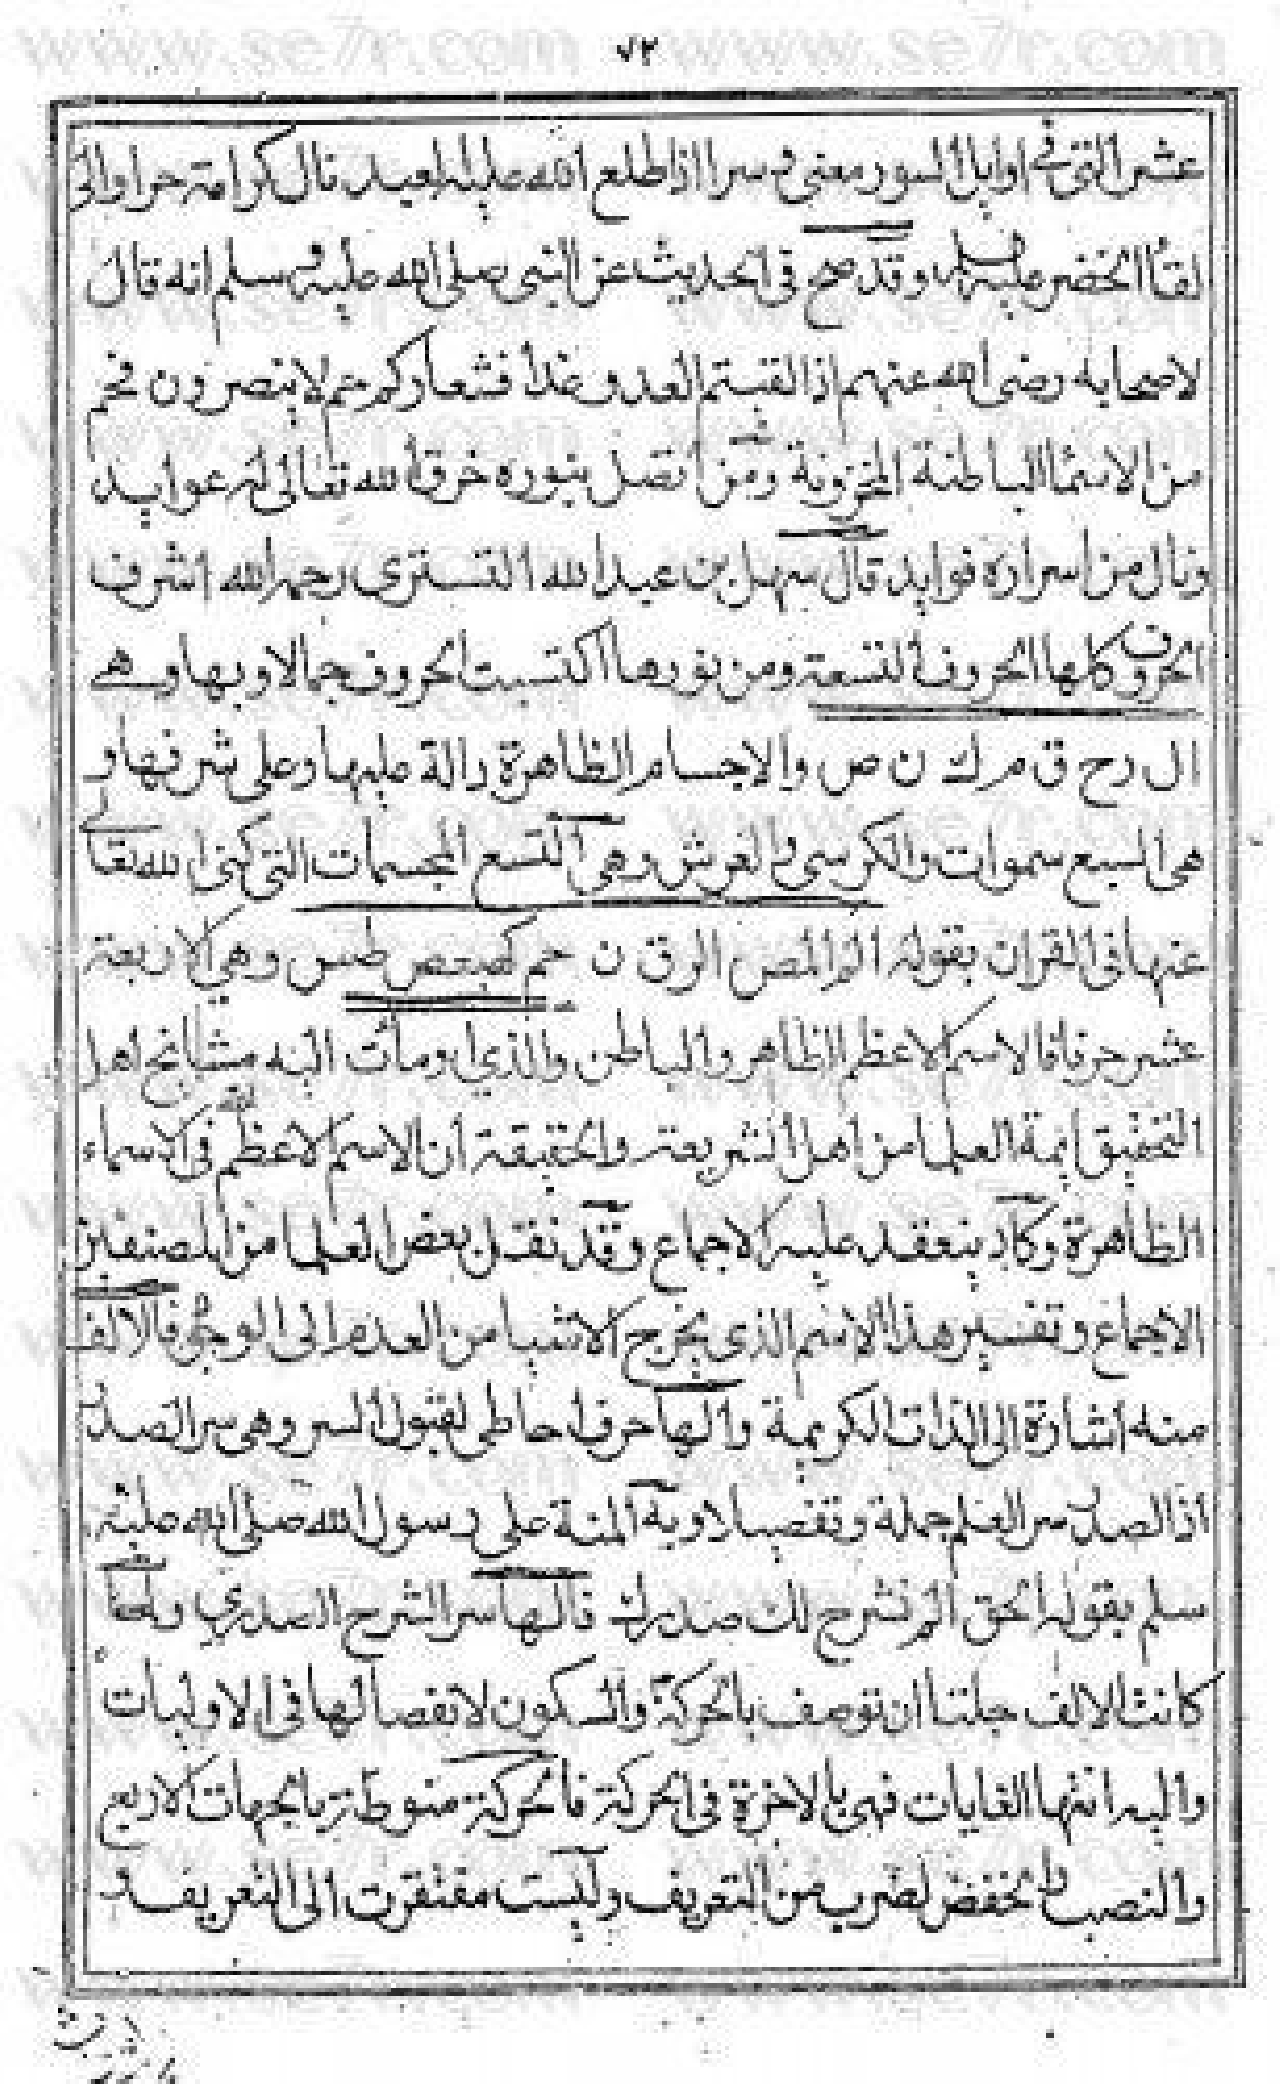 www.se7r.com ٧٢ www.se7r.com
عشر التى فى اوايل السور معنى وسرا اذا طلع الله عليه العبد نال كرامة جرا والى
لقأ الخضر عليه السلم وقد صح فى الحديث عن النبى صلى الله عليه وسلم انه قال
لاصحابه رضى الله عنهم اذا لقيتم العدو غدا فشعاركم حم لا ينصرون فحم
من الاسما الباطنة المخزونة ومن اتصل بنوره خرق الله تعالى له عوايد
ونال من اسراره فوايد قال سهل بن عبد الله التسترى رحمه الله اشرف
الحروف كلها الحروف التسعة ومن نورها اكتسبت الحروف جمالا وبها وهى
ال رح ق م ك ن ص والاجسام الظاهرة دالة عليها وعلى شرفها و
هى السبع سموات والكرسى والعرش وهى التسع المجسمات التى كنى الله تعالى
عنها فى القران بقوله الم المص الر ق ن حم كهيعص طس وهى الاربعة
عشر حرفا فالاسم الاعظم الظاهر والباطن والذى اومأت اليه مشايخ اهل
التحقيق ايمة العلما من اهل الشريعة والحقيقة ان الاسم الاعظم الله فى الاسماء
الظاهرة وكاد ينعقد عليه الاجماع وقد نقل بعض العلما من المصنفين
الاجماع وتفسير هذا الاسم الذى يخرج الاشيا من العدم الى الوجود فالالف
منه اشارة الى الذات الكريمة والها حرف احاطى لقبول السر وهى سر الصدر
اذ الصدر سر العلم جملة وتفصيلا وبه المنة على رسول الله صلى الله عليه و
سلم بقوله الحق الم نشرح لك صدرك فالها سر الشرح الصدرى ولما
كانت الالف جلت ان توصف بالحركة والسكون لانفصالها فى الاوليات
واليه انتها الغايات فهى بالاخرة فى الحركة فالحركة منوطة بالجهات الاربع
والنصب والخفض لضرب من التعريف وليست مفتقرت الى التعريف و